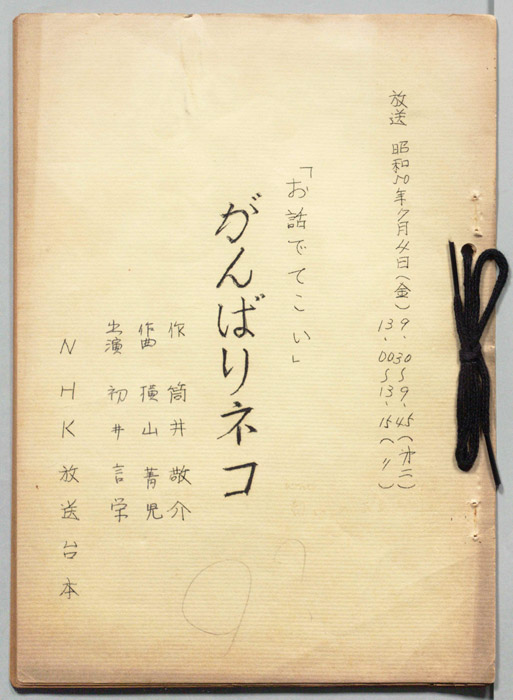 放送 昭和50年7月4日(金)
9.30〜9.45(第二)
13.00〜13.15(〃)
「お話でてこい」
がんばりネコ
作 筒井敬介
作曲 横山菁児
出演 初井言栄
NHK放送台本